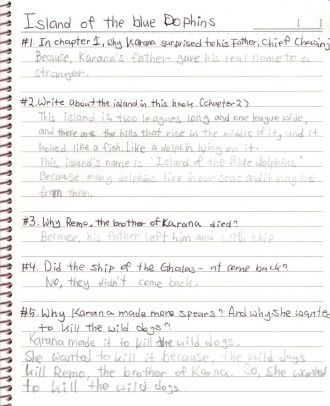 Island of the blue Dophins [ ]
#1. In chapter 1, why Karana surprised to his Father, Chief Chowing
Because, Karana's father gave his real name to a
stranger.
#2. Write about the island in this book. (chapter 2)
This island is two leagues long and one league wide,
and there are the hills that rise in the middle of ity and it
looked like a fish. like a dolphin lying on it.
This island's name is "Island of the Blue dolphins"
Because many dolphins live in our seas and it may be
from them.
#3. Why Remo, the brother of Karana died?
Because, his father left him and with ship
#4. Did the ship of the Ghalas-at come back?
No, they didn't come back.
#5. Why Karana made more spears? And why she wanted
to kill the wild dogs?
Karana made it to kill the wild dogs.
She wanted to kill it because, the wild dogs
kill Remo, the brother of Karna. So, she wanted
to kill the wild dogs.